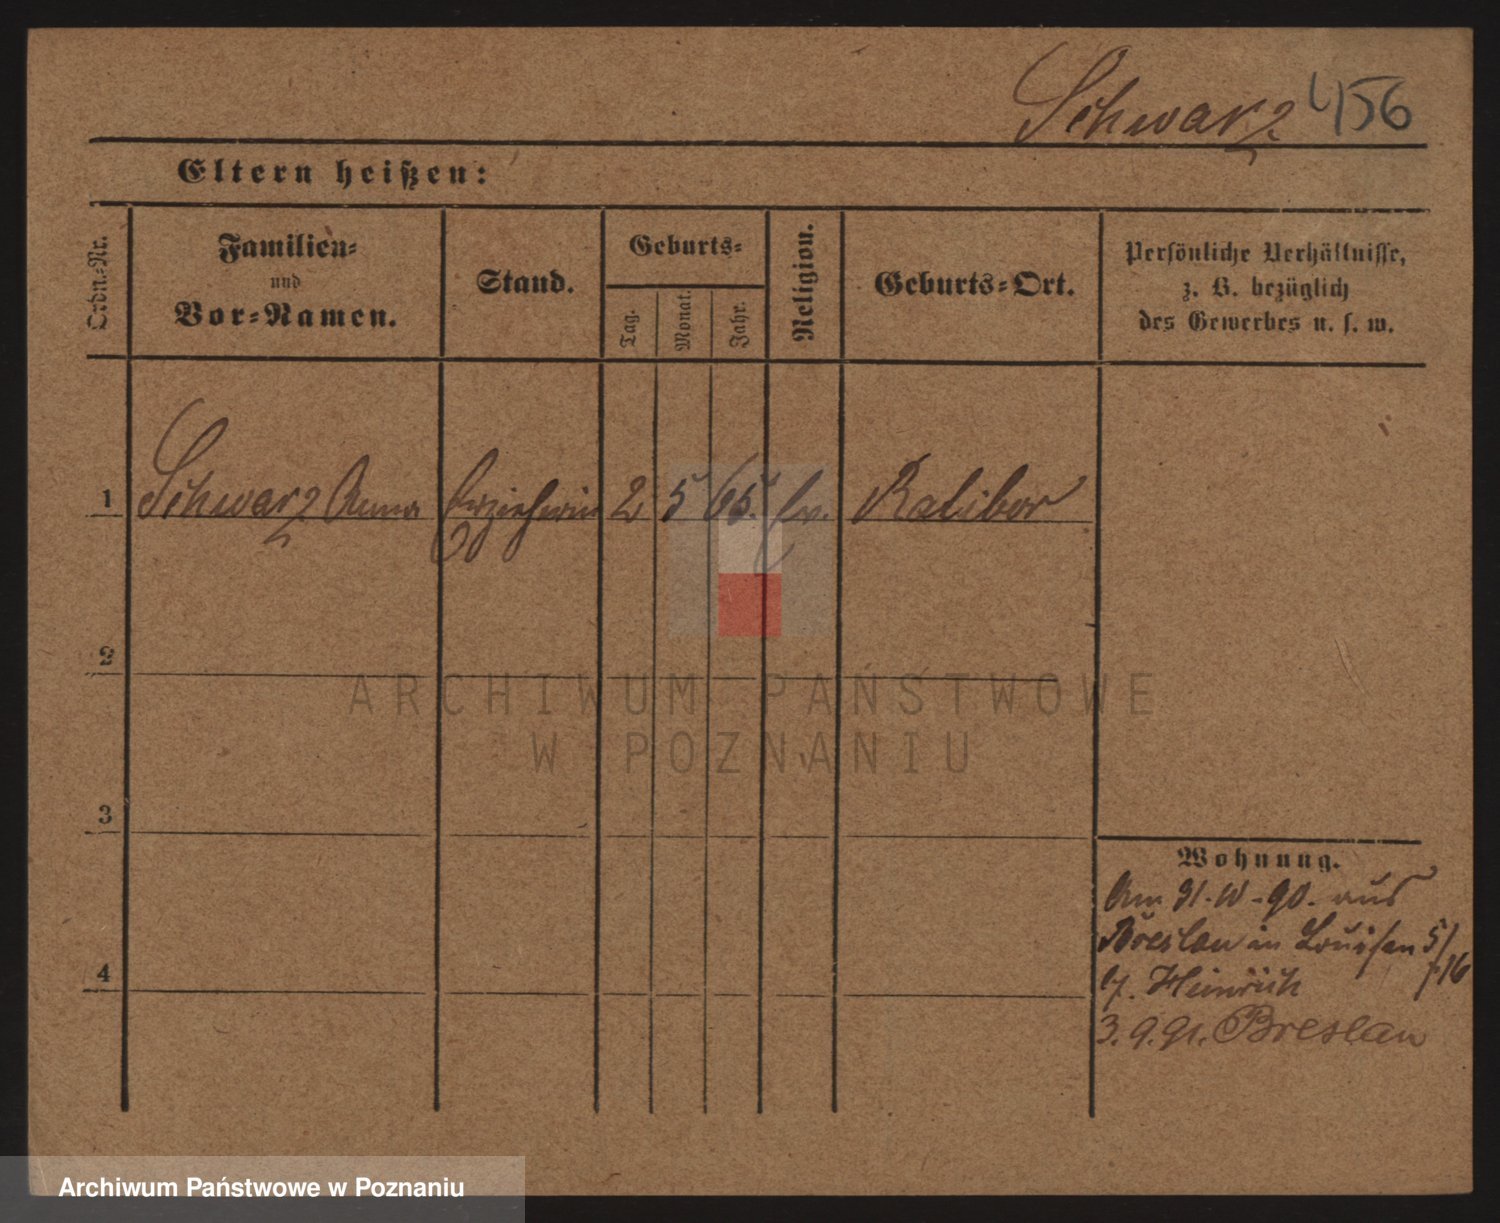 Schwarz 456
Eltern heißen:
Ordn.-Nr.
Familien-
und
Vor-Namen.
Stand.
Geburts-
Tag.
Monat.
Jahr.
Religion.
Geburts-Ort.
Persönliche Verhältnisse,
z. B. bezüglich
des Gewerbes u. s. w.
1 Schwarz Anna Erzieherin 2 5 65. Ev. Ratibor
2
ARCHIWUM PAŃSTWOWE
W POZNANIU
3
4
Wohnung.
Am aus
Breslau in Louisen 5/16
Heinrich
3.9.91. Breslau
Archiwum Państwowe w Poznaniu